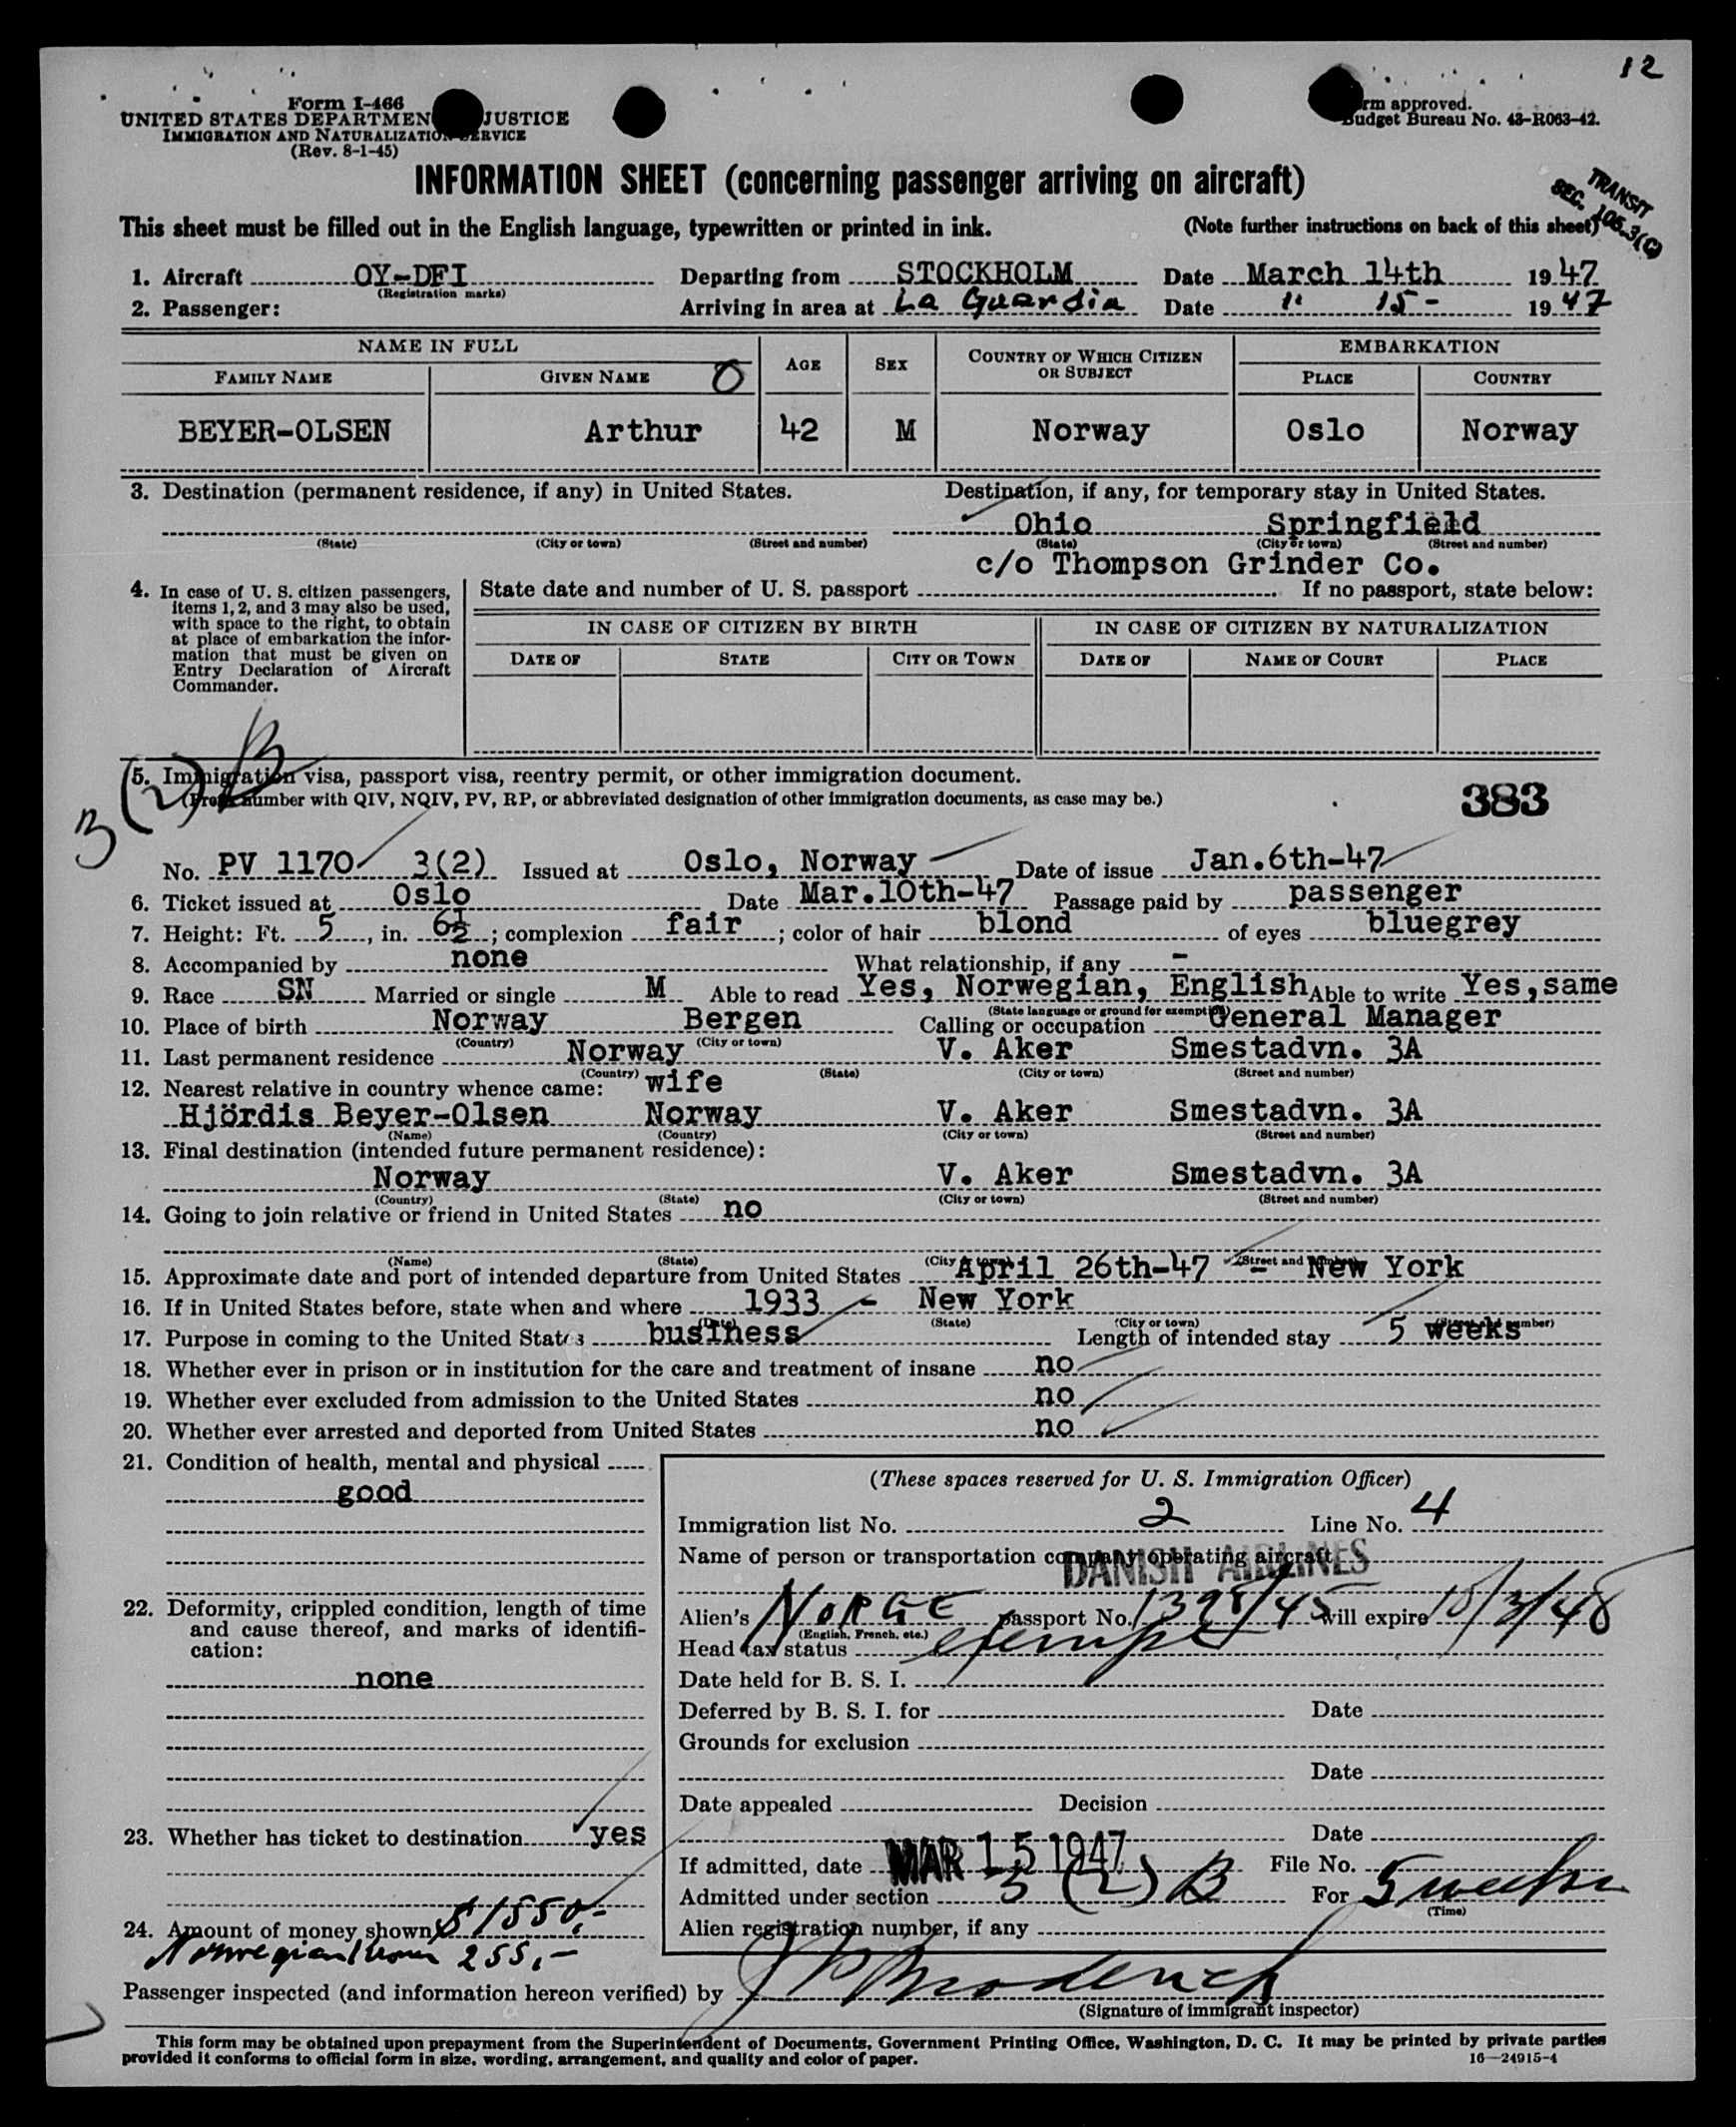 12
Form I-466
UNITED STATES DEPARTMEN JUSTICE
IMMIGRATION AND NATURALIZATION SERVICE
(Rev. 8-1-45)
rm approved.
Budget Bureau No. 43-R063-42.
INFORMATION SHEET (concerning passenger arriving on aircraft)
TRANSIT
SEC. 105.3(C)
This sheet must be filled out in the English language, typewritten or printed in ink. (Note further instructions on back of this sheet)
1. Aircraft OY-DFI Departing from STOCKHOLM Date March 14th 1947
(Registration marks)
2. Passenger: Arriving in area at La Guardia Date " 15- 1947
NAME IN FULL AGE SEX COUNTRY OF WHICH CITIZEN OR SUBJECT EMBARKATION
FAMILY NAME GIVEN NAME O PLACE COUNTRY
BEYER-OLSEN Arthur 42 M Norway Oslo Norway
3. Destination (permanent residence, if any) in United States. Destination, if any, for temporary stay in United States.
Ohio Springfield
(State) (City or town) (Street and number) (State) (City or town) (Street and number)
c/o Thompson Grinder Co.
4. In case of U. S. citizen passengers, items 1, 2, and 3 may also be used, with space to the right, to obtain at place of embarkation the information that must be given on Entry Declaration of Aircraft Commander.
State date and number of U. S. passport If no passport, state below:
IN CASE OF CITIZEN BY BIRTH IN CASE OF CITIZEN BY NATURALIZATION
DATE OF STATE CITY OR TOWN DATE OF NAME OF COURT PLACE
3 (2) B
5. Immigration visa, passport visa, reentry permit, or other immigration document.
(Prefix number with QIV, NQIV, PV, RP, or abbreviated designation of other immigration documents, as case may be.)
383
No. PV 1170 3(2) Issued at Oslo, Norway Date of issue Jan.6th-47
6. Ticket issued at Oslo Date Mar.10th-47 Passage paid by passenger
7. Height: Ft. 5, in. 6½; complexion fair; color of hair blond of eyes bluegrey
8. Accompanied by none What relationship, if any -
9. Race SN Married or single M Able to read Yes, Norwegian, English Able to write Yes,same
(State language or ground for exemption)
10. Place of birth Norway Bergen Calling or occupation General Manager
(Country) (City or town)
11. Last permanent residence Norway V. Aker Smestadvn. 3A
(Country) (State) (City or town) (Street and number)
12. Nearest relative in country whence came: wife
Hjördis Beyer-Olsen Norway V. Aker Smestadvn. 3A
(Name) (Country) (City or town) (Street and number)
13. Final destination (intended future permanent residence):
Norway V. Aker Smestadvn. 3A
(Country) (State) (City or town) (Street and number)
14. Going to join relative or friend in United States no
(Name) (State) (City or town) (Street and number)
15. Approximate date and port of intended departure from United States April 26th-47 - New York
16. If in United States before, state when and where 1933 - New York
(Date) (State) (City or town) (Street and number)
17. Purpose in coming to the United States business Length of intended stay 5 weeks
18. Whether ever in prison or in institution for the care and treatment of insane no
19. Whether ever excluded from admission to the United States no
20. Whether ever arrested and deported from United States no
21. Condition of health, mental and physical
good
22. Deformity, crippled condition, length of time
and cause thereof, and marks of identifi-
cation:
none
23. Whether has ticket to destination yes
24. Amount of money shown $1550,-
Norwegian Kroner 255,-
(These spaces reserved for U. S. Immigration Officer)
Immigration list No. 2 Line No. 4
Name of person or transportation company operating aircraft
DANISH AIRLINES
Alien's NORGE passport No. 1398/45 will expire 10/3/48
(English, French, etc.)
Head tax status exempt
Date held for B. S. I.
Deferred by B. S. I. for Date
Grounds for exclusion
Date
Date appealed Decision
Date
If admitted, date MAR 15 1947 File No.
Admitted under section 3 (2) B For 5 weeks
(Time)
Alien registration number, if any
Passenger inspected (and information hereon verified) by
(Signature of immigrant inspector)
This form may be obtained upon prepayment from the Superintendent of Documents, Government Printing Office, Washington, D. C. It may be printed by private parties
provided it conforms to official form in size, wording, arrangement, and quality and color of paper. 16—24915-4